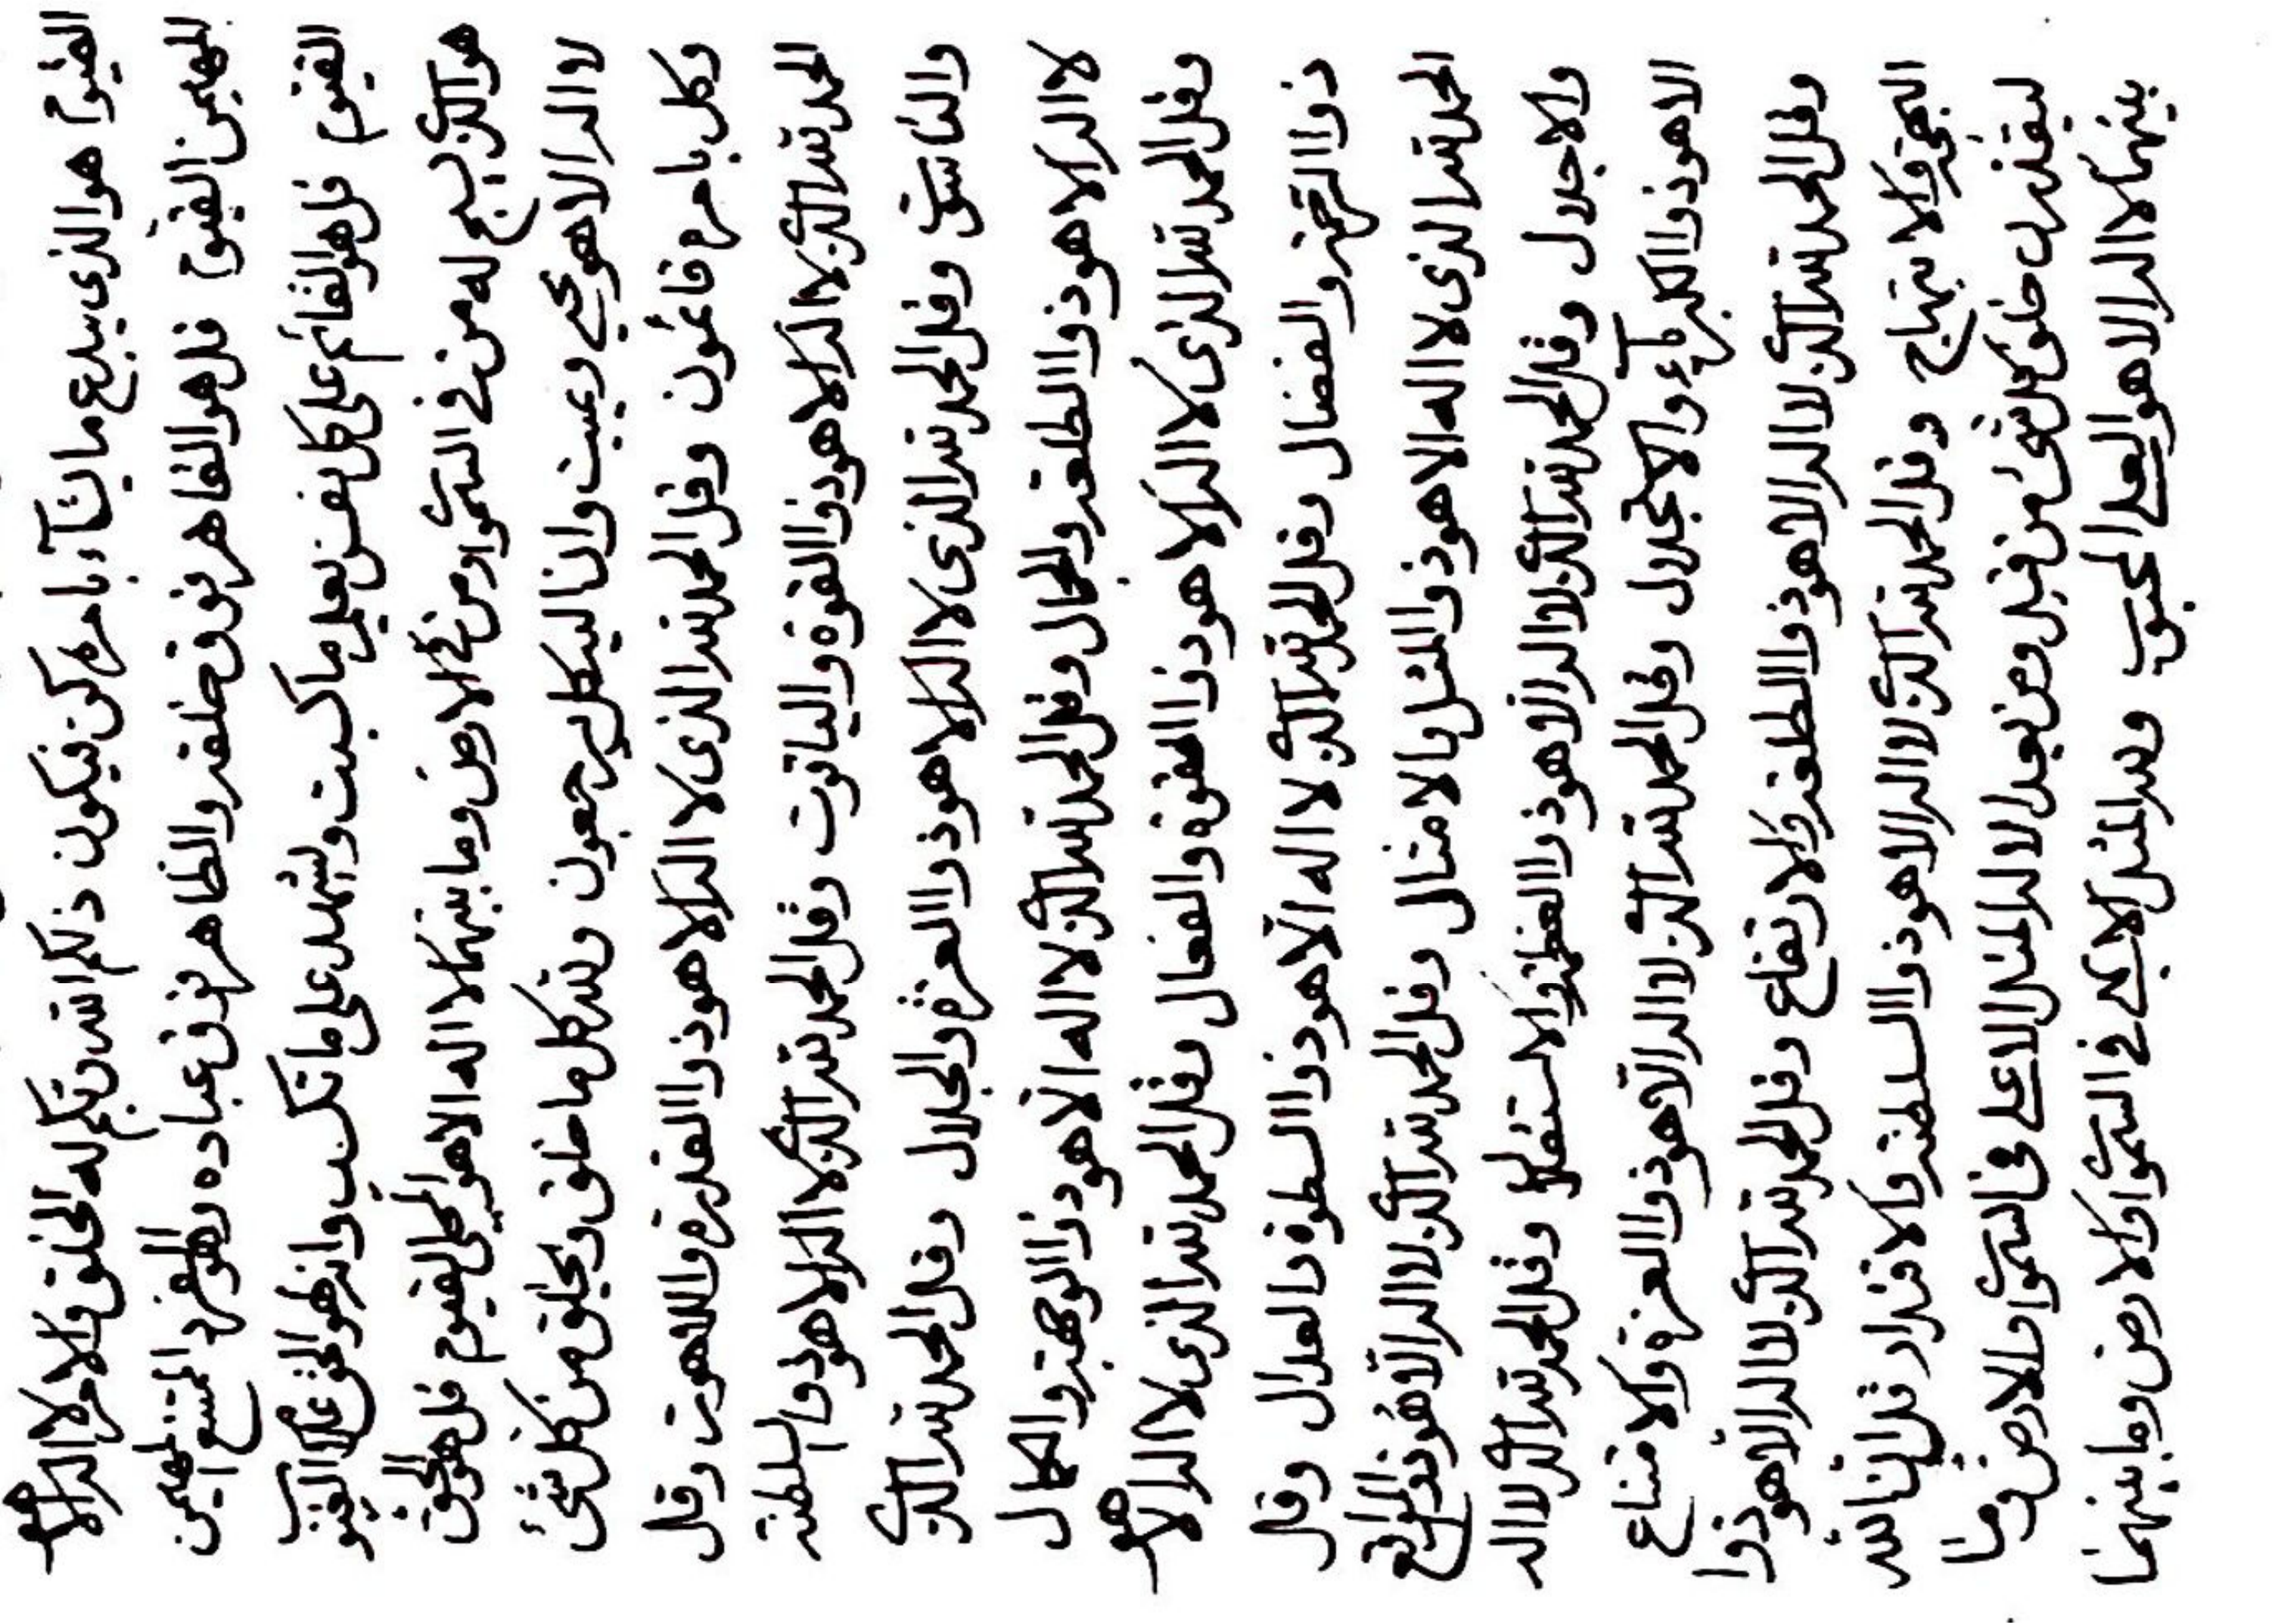 القيوم هو الذى يبدع ما يشآء بامره كن فيكون ذلكم الله ربكم له الخلق والامر لا اله الا هو
المهيمن القيوم قل هو القاهر فوق خلقه والظاهر فوق عباده وهو الفرد الممتنع المهيمن
القيوم قل هو القائم على كل نفس بعلم ما كسبت وليشهد على ما تكسب وانه لهو الحق علام الغيو
هو الذى يسبح له من فى السموات ومن فى الارض وما بينهما لا اله الا هو المحيى القيوم قل هو الحق
لا اله الا هو يحيى ويميت وانا اليه كل يرجعون ولله كل ما خلق ويخلق من كل شئ
وكل بامره قائمون وقل الحمد لله الذى لا اله الا هو ذوا القدرة واللاهوت وقل
الحمد لله الذى لا اله الا هو ذوا القوة والياقوت وقل الحمد لله الذى لا اله الا هو ذوا السلطنة
والناسوت وقل الحمد لله الذى لا اله الا هو ذوا العزة والجلال وقل الحمد لله الذى
لا اله الا هو ذوا الطلعة والجمال وقل الحمد لله الذى لا اله الا هو ذوا الوجهة والكمال
وقل الحمد لله الذى لا اله الا هو ذوا القوة والفعال وقل الحمد لله الذى لا اله الا هو
ذوا الرحمة والفضال وقل الحمد لله الذى لا اله الا هو ذوا السطوة والعدال وقل
الحمد لله الذى لا اله الا هو ذوا المثل بالامثال وقل الحمد لله الذى لا اله الا هو ذوا المواقع
والاجلال وقل الحمد لله الذى لا اله الا هو ذوا العظمة والاستقلال وقل الحمد لله الذى لا اله
الا هو ذوا الكبريآء والاجلال وقل الحمد لله الذى لا اله الا هو ذوا العزة والامتناع
وقل الحمد لله الذى لا اله الا هو ذوا الطلعة والارتفاع وقل الحمد لله الذى لا اله الا هو ذوا
البهجة والابتهاج وقل الحمد لله الذى لا اله الا هو ذوا السلطنة والاقتدار قل ان الله
ليقدرن خلق كل شئ من قبل ومن بعد له المثل الاعلى فى السموات والارض وما
بينهما لا اله الا هو العلى المحبوب وله المثل الابهى فى السموات والارض وما بينهما